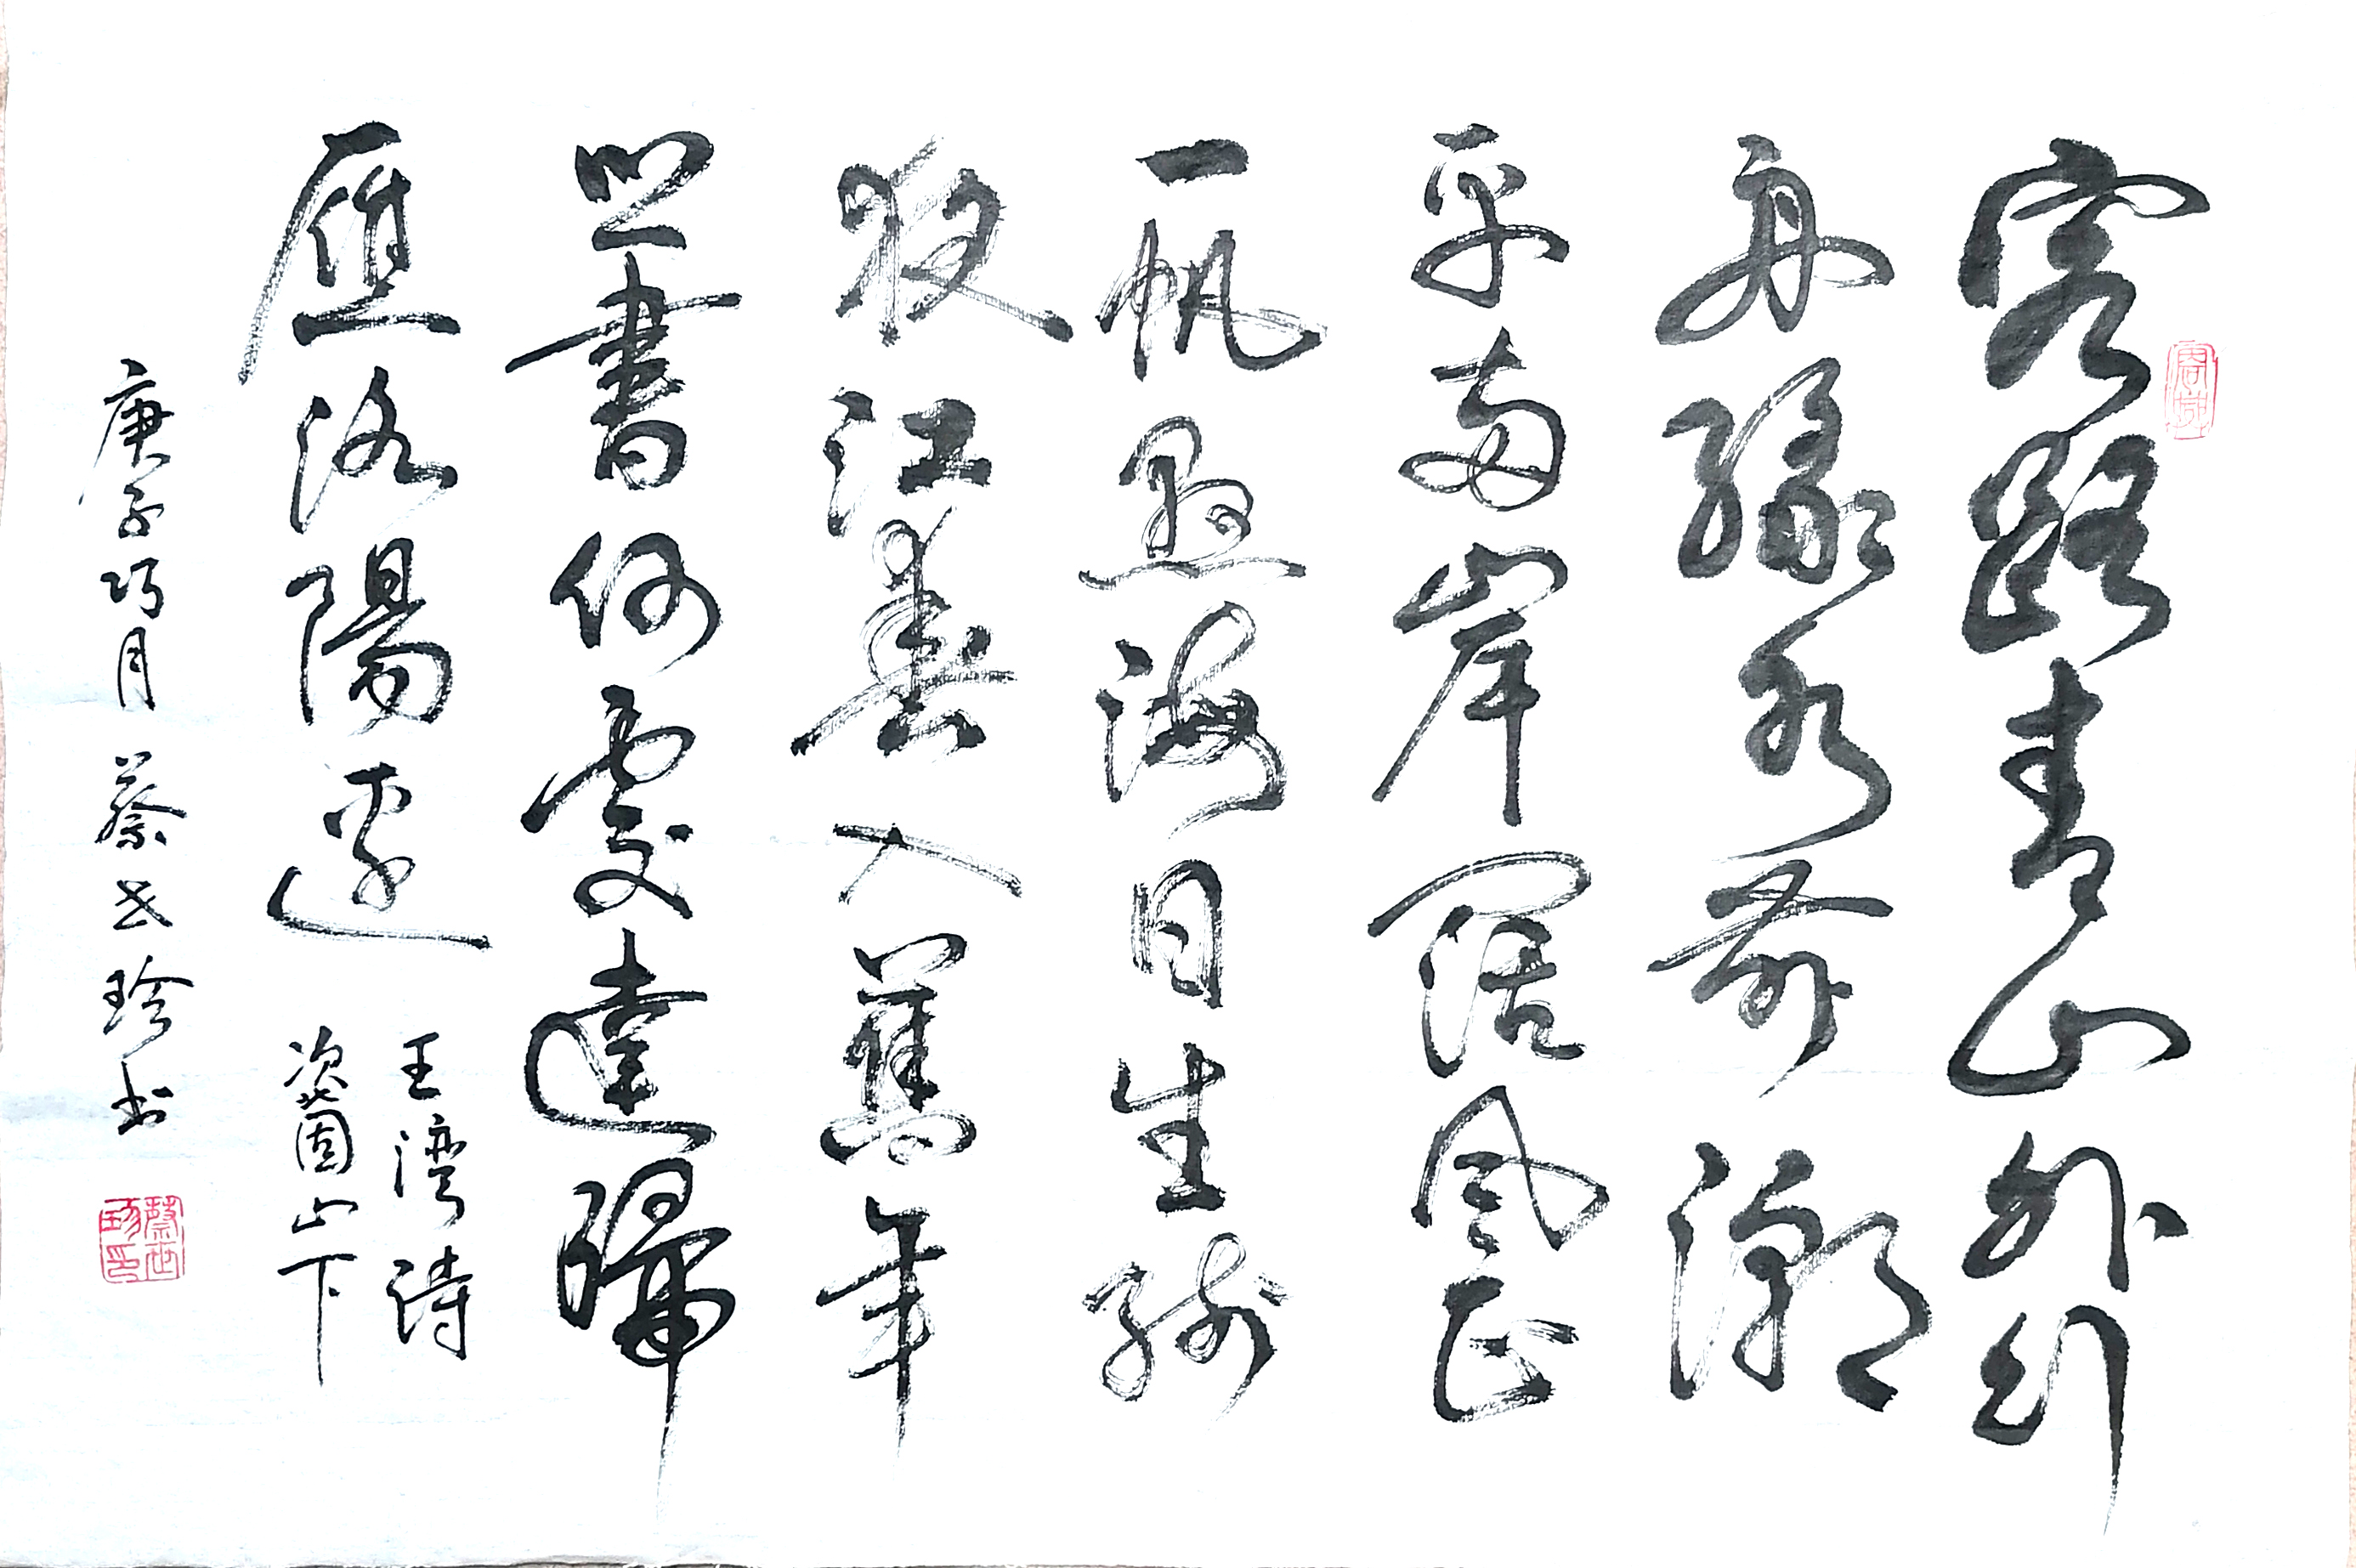 客路青山外行
舟綠水前潮
平兩岸闊風正
一帆懸海日生殘
夜江春入舊年
鄉書何處達歸
雁洛陽邊
王湾诗
次北固山下
庚子巧月 蔡世珍书
蔡世珍印